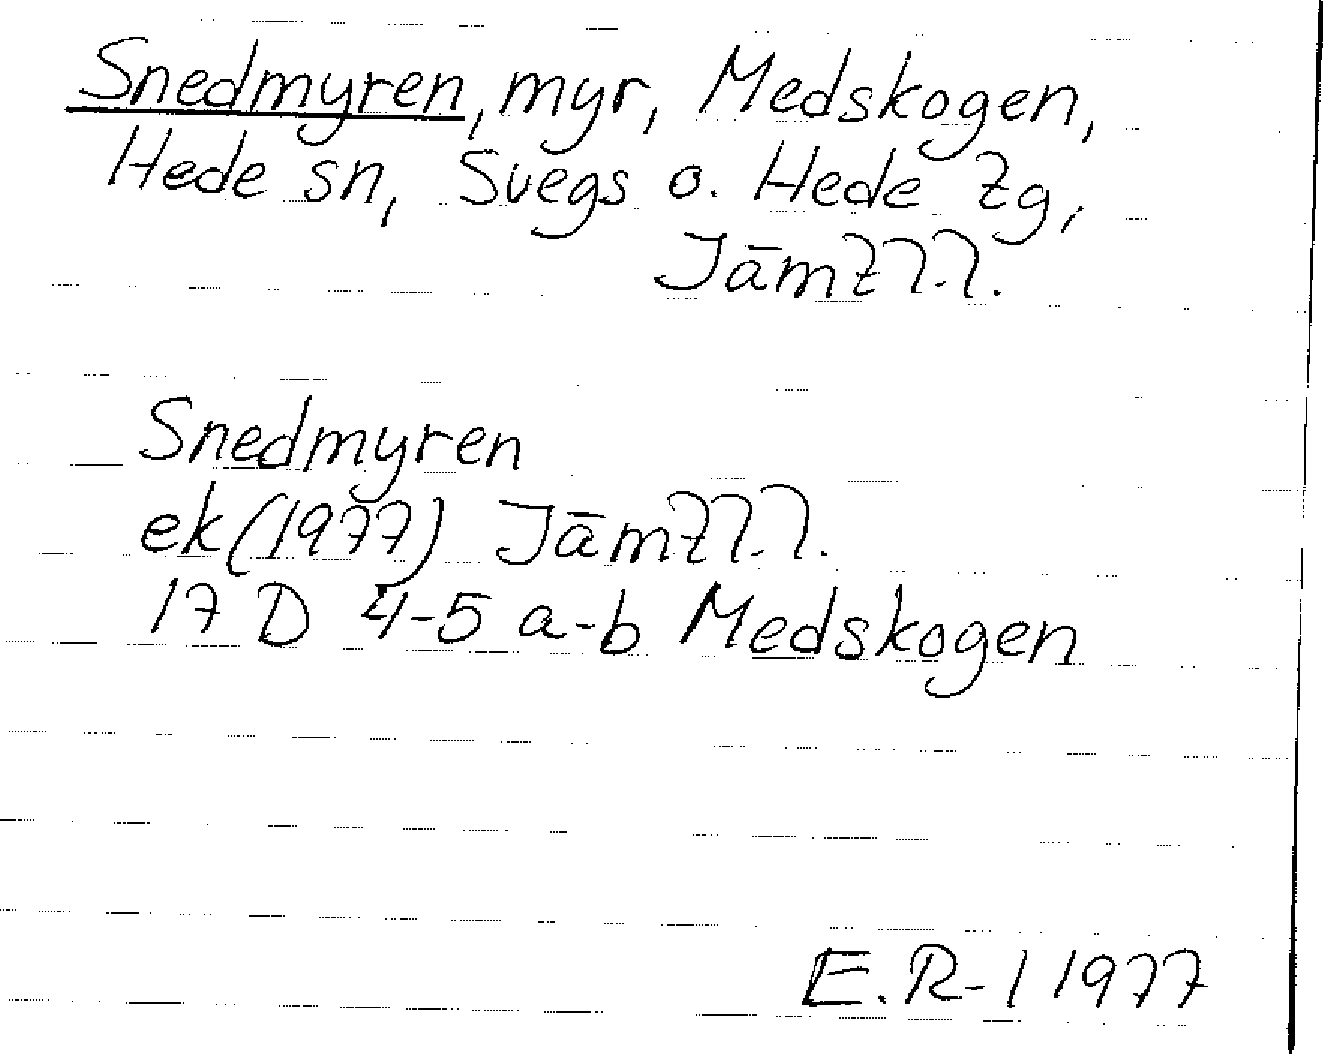 Snedmyren, myr, Medskogen,
Hede sn, Svegs o. Hede tg,
Jämtl.l.
Snedmyren
ek (1977) Jämtl.l.
17 D 4-5 a-b Medskogen
E.R-l 1977